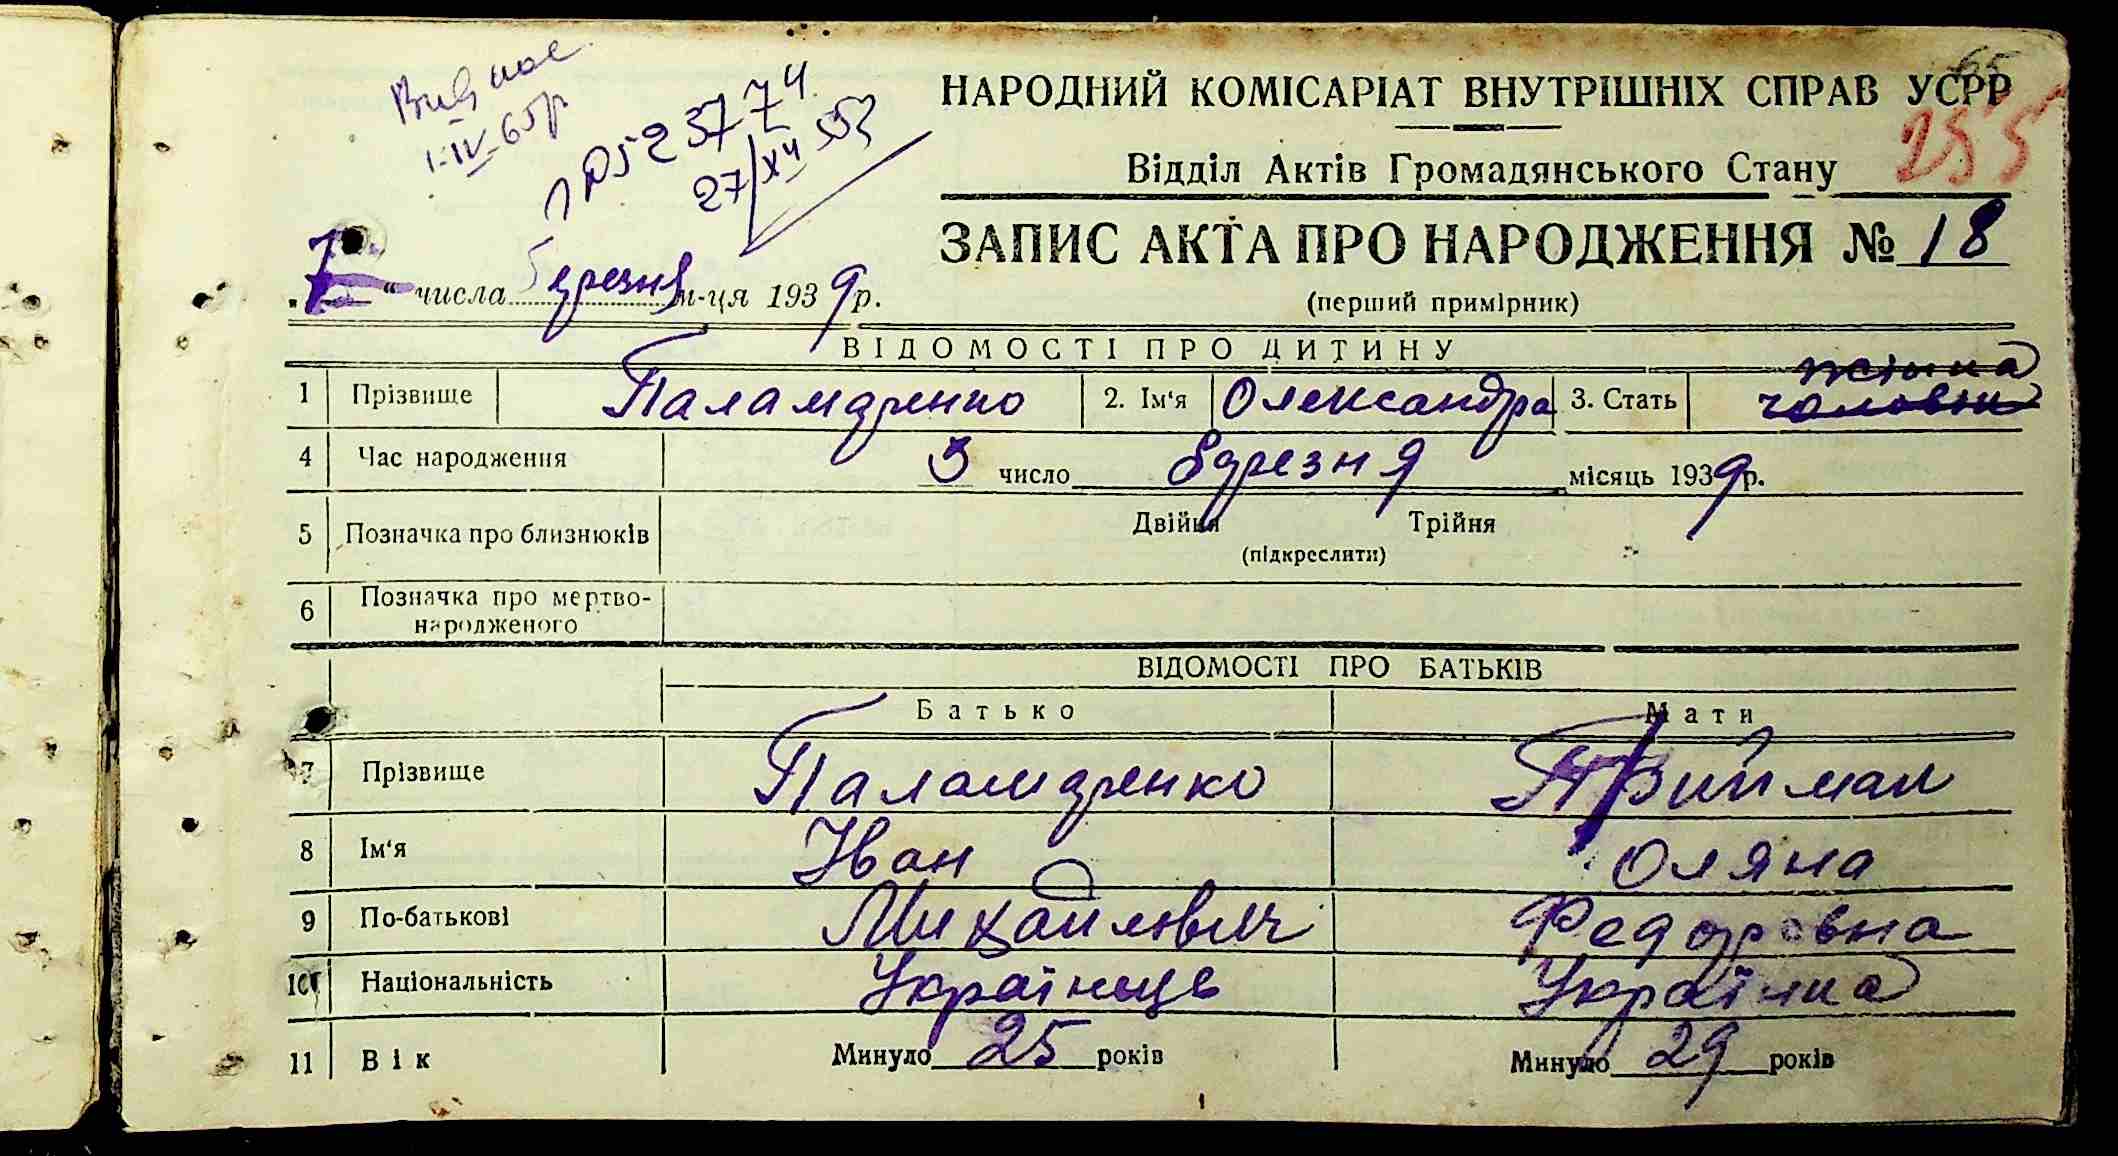 65
НАРОДНИЙ КОМІСАРІАТ ВНУТРІШНІХ СПРАВ УСРР
255
Відділ Актів Громадянського Стану
1-IV-65р
527
27/XII 55
ЗАПИС АКТА ПРО НАРОДЖЕННЯ № 18
(перший примірник)
„7“ числа березня м-ця 1939р.
ВІДОМОСТІ ПРО ДИТИНУ
1 Прізвище Паламаренко 2. Ім'я Олександра 3. Стать жіноча
4 Час народження 3 число березня місяць 1939р.
5 Позначка про близнюків Двійня Трійня
(підкреслити)
6 Позначка про мертво-
народженого
ВІДОМОСТІ ПРО БАТЬКІВ
Батько Мати
7 Прізвище Паламаренко Приймак
8 Ім'я Іван Оляна
9 По-батькові Михайлович Федоровна
10 Національність Українець Українка
11 Вік Минуло 25 років Минуло 29 років
1